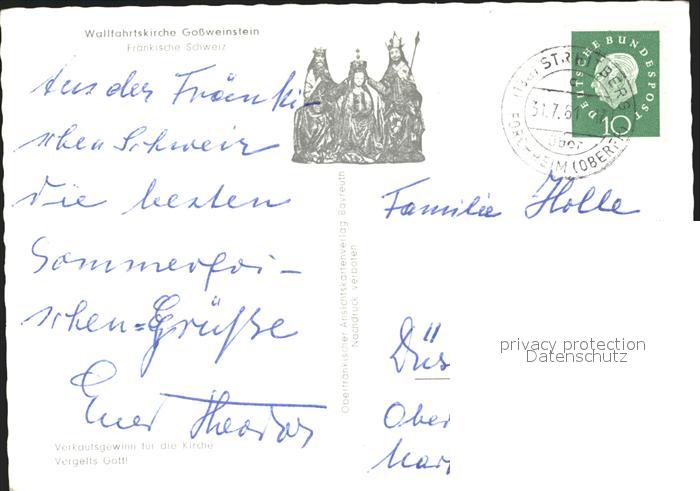 Wallfahrtskirche Goßweinstein
Fränkische Schweiz
Aus der Fränki-
schen Schweiz
die besten
Sommerfri-
schen-Grüße
Euer Theodor
Verkaufsgewinn für die Kirche
Vergelts Gott!
Oberfränkischer Ansichtskartenverlag Bayreuth
Nachdruck verboten
DEUTSCHE BUNDESPOST
10
STREITBERG
31.7.61
über
FORCHHEIM (OBERFR
Familie Holle
Düs
Ober
Mar
privacy protection
Datenschutz